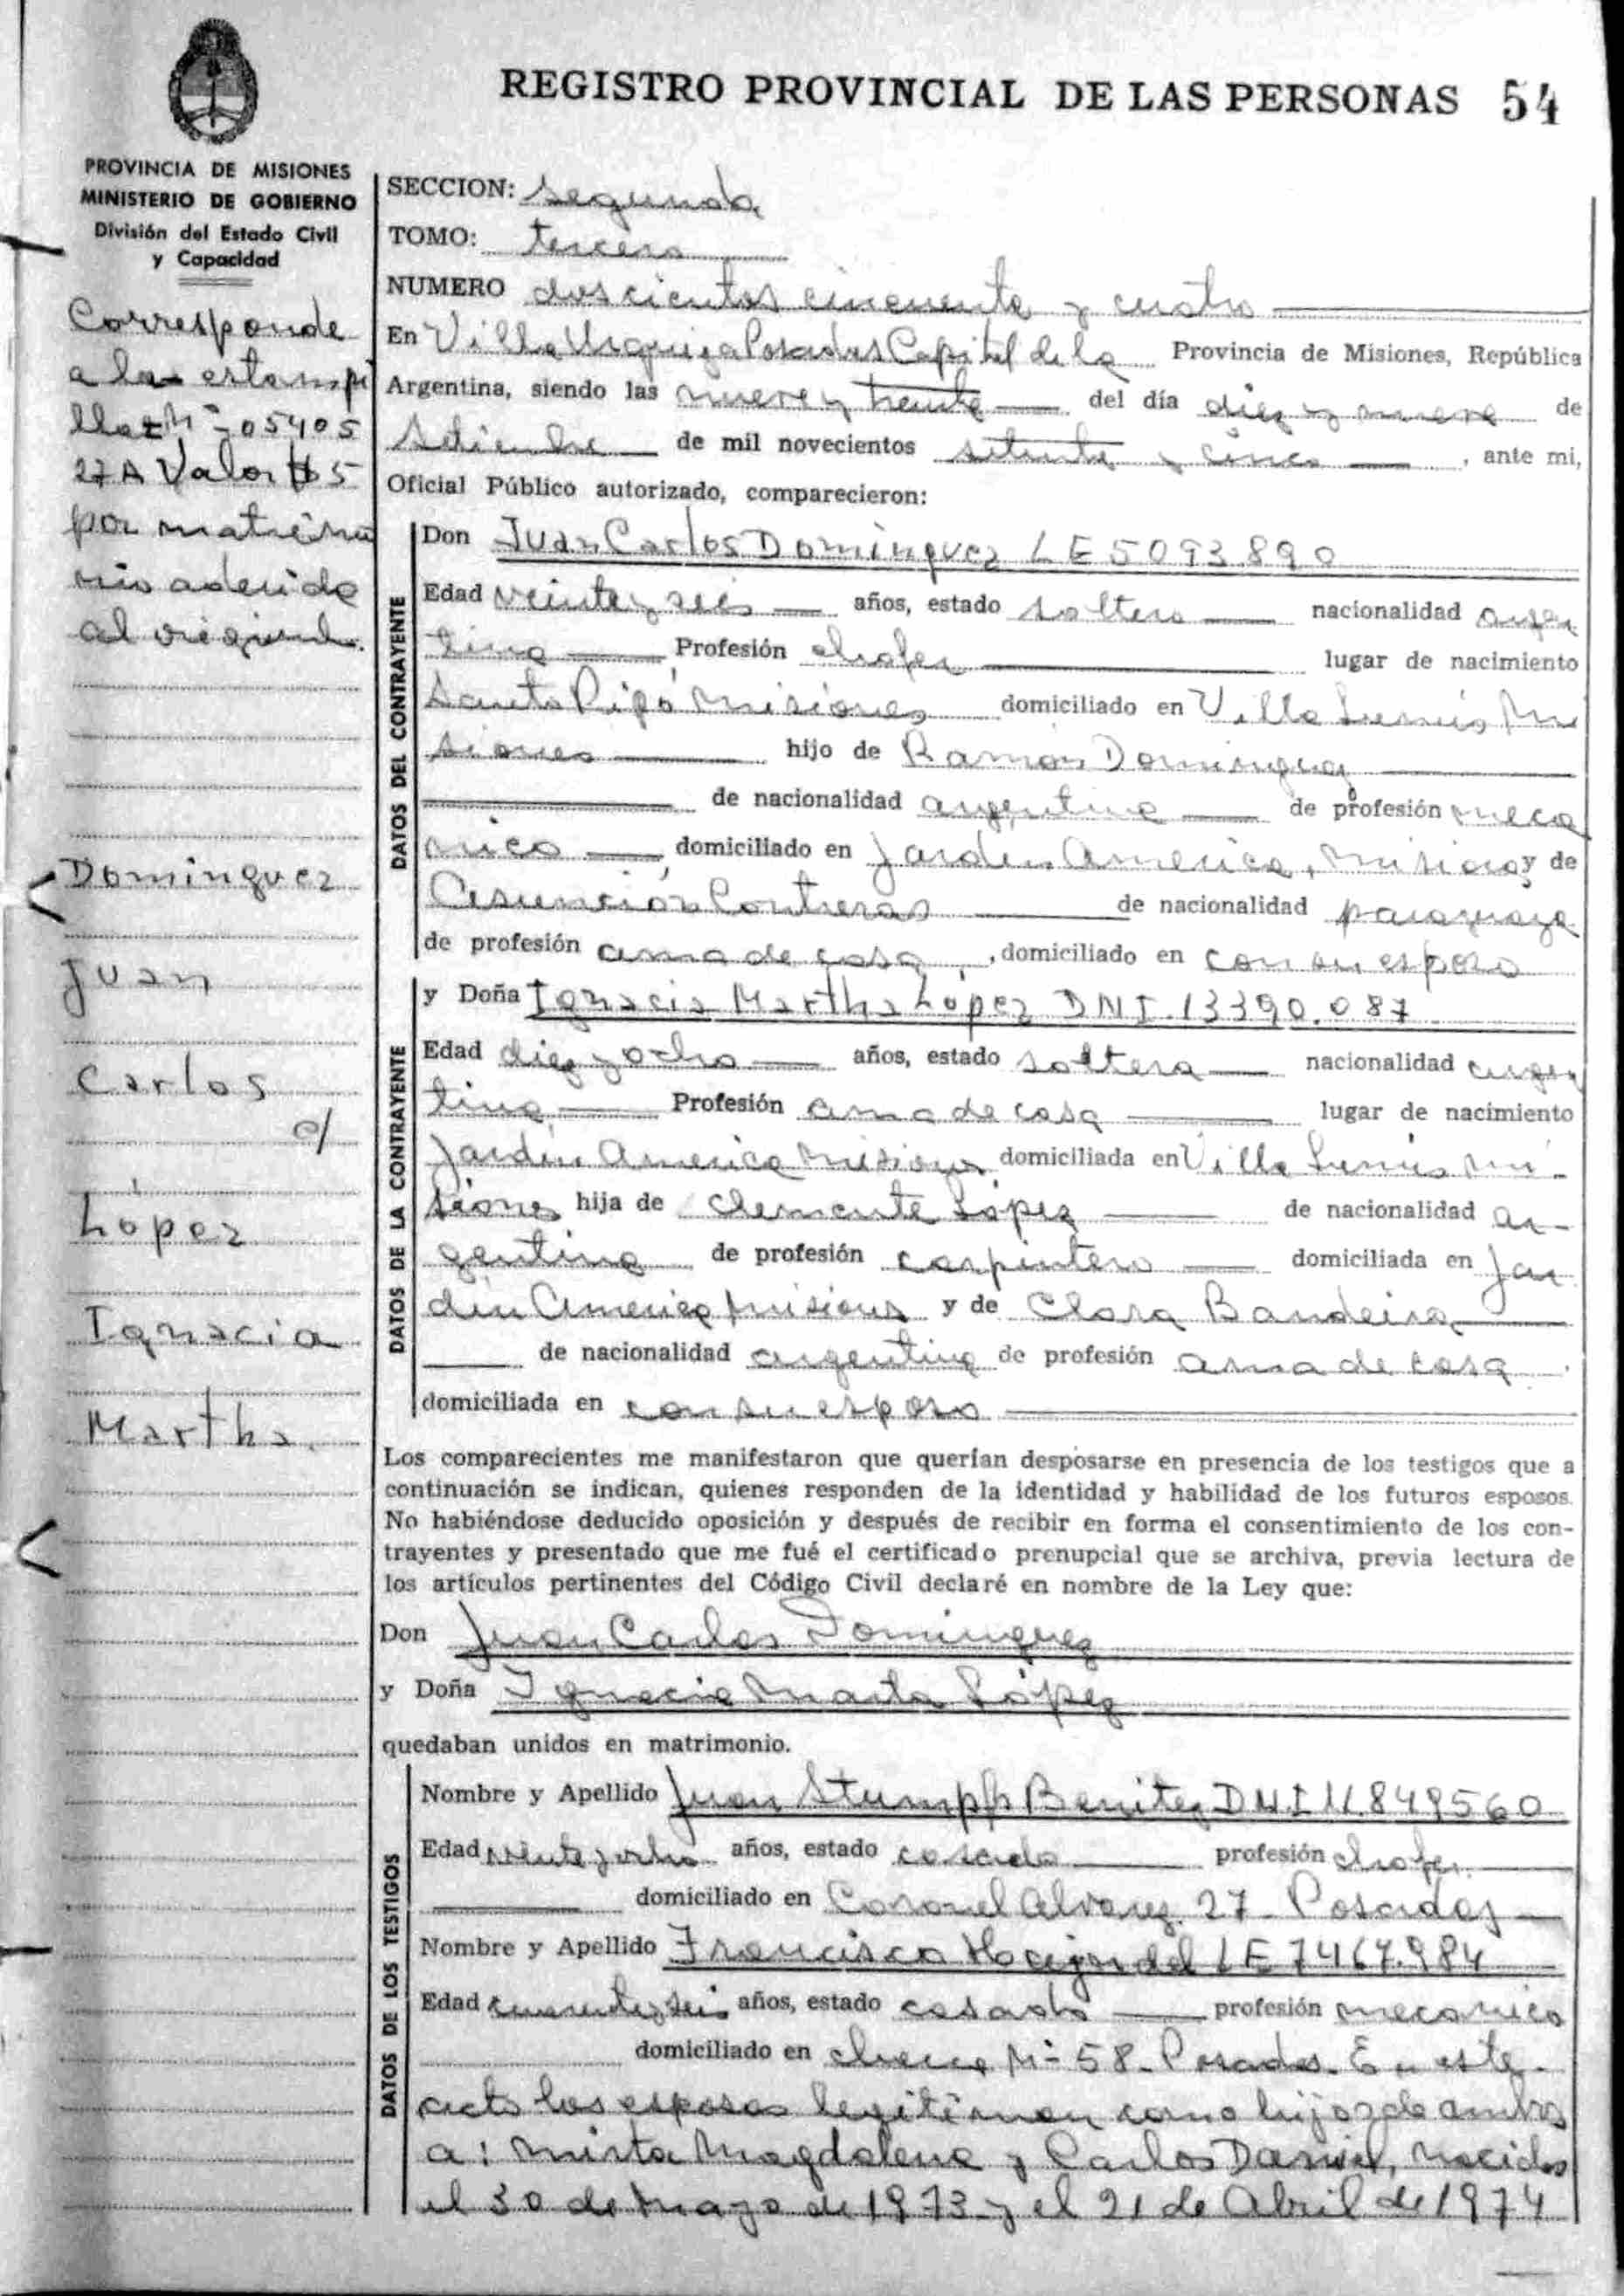 REGISTRO PROVINCIAL DE LAS PERSONAS 54
PROVINCIA DE MISIONES
MINISTERIO DE GOBIERNO
División del Estado Civil
y Capacidad
Corresponde
a la estampi
lla Nº 05405
27 A Valor $ 5
por matrimo
nio aderida
al original.
Dominguez
Juan
Carlos
c/
López
Ignacia
Martha.
SECCION: segunda
TOMO: tercero
NUMERO doscientos cincuenta y cuatro
En Villa Urquiza Posadas Capital de la Provincia de Misiones, República
Argentina, siendo las nueve y treinta del día diez y nueve de
Setiembre de mil novecientos setenta y cinco, ante mi,
Oficial Público autorizado, comparecieron:
DATOS DEL CONTRAYENTE
Don Juan Carlos Dominguez LE 5093.890
Edad veinte y seis años, estado soltero nacionalidad argen
tina Profesión chofer lugar de nacimiento
Santo Pipó Misiones domiciliado en Villa Lanús Mi
siones hijo de Ramón Dominguez
de nacionalidad argentina de profesión meca
nico domiciliado en Jardín America, Misiones y de
Asunción Contreras de nacionalidad paraguaya
de profesión ama de casa, domiciliado en con su esposo
DATOS DE LA CONTRAYENTE
y Doña Ignacia Martha López DNI. 13390.087
Edad diez y ocho años, estado soltera nacionalidad argen
tina Profesión ama de casa lugar de nacimiento
Jardín America Misiones domiciliada en Villa Lanús Mi
siones hija de Clemente López de nacionalidad ar-
gentina de profesión carpintero domiciliada en Jar
dín America Misiones y de Clara Bandeira
de nacionalidad argentina de profesión ama de casa
domiciliada en con su esposo
Los comparecientes me manifestaron que querían desposarse en presencia de los testigos que a
continuación se indican, quienes responden de la identidad y habilidad de los futuros esposos.
No habiéndose deducido oposición y después de recibir en forma el consentimiento de los con-
trayentes y presentado que me fué el certificado prenupcial que se archiva, previa lectura de
los artículos pertinentes del Código Civil declaré en nombre de la Ley que:
Don Juan Carlos Dominguez
y Doña Ignacia Marta López
quedaban unidos en matrimonio.
DATOS DE LOS TESTIGOS
Nombre y Apellido Juan Stumpfs Benitez DNI 11.849560
Edad veinte y ocho años, estado casado profesión chofer
domiciliado en Coronel Alvarez 27 - Posadas
Nombre y Apellido Francisco LE 7467.984
Edad cuarenta y seis años, estado casado profesión mecanico
domiciliado en Nº 58 - Posadas. En este
acto los esposos legitiman como hijos de ambos
a: Mirta Magdalena y Carlos Daniel, nacidos
el 30 de Mayo de 1973 y el 21 de Abril de 1974